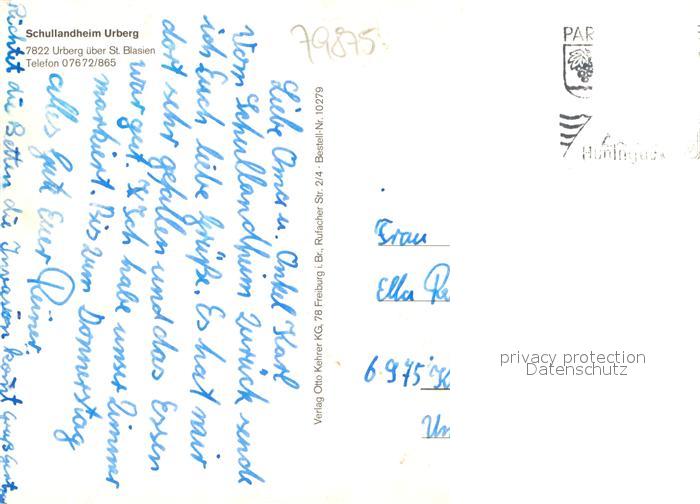 Schullandheim Urberg
7822 Urberg über St. Blasien
Telefon 07672/865
79875
Liebe Oma u. Onkel Karl
Vom Schullandheim zurück sende
ich Euch liebe Grüße. Es hat mir
dort sehr gefallen und das Essen
war gut. Ich habe unser Zimmer
markiert. Bis zum Donnerstag
alles gute Euer Reiner
Richtet die Betten die Invasion komt
Verlag Otto Kehrer KG, 78 Freiburg i. Br., Rufacher Str. 2/4 · Bestell-Nr. 10279
PAR
Frau
Ella
6975
privacy protection
Datenschutz